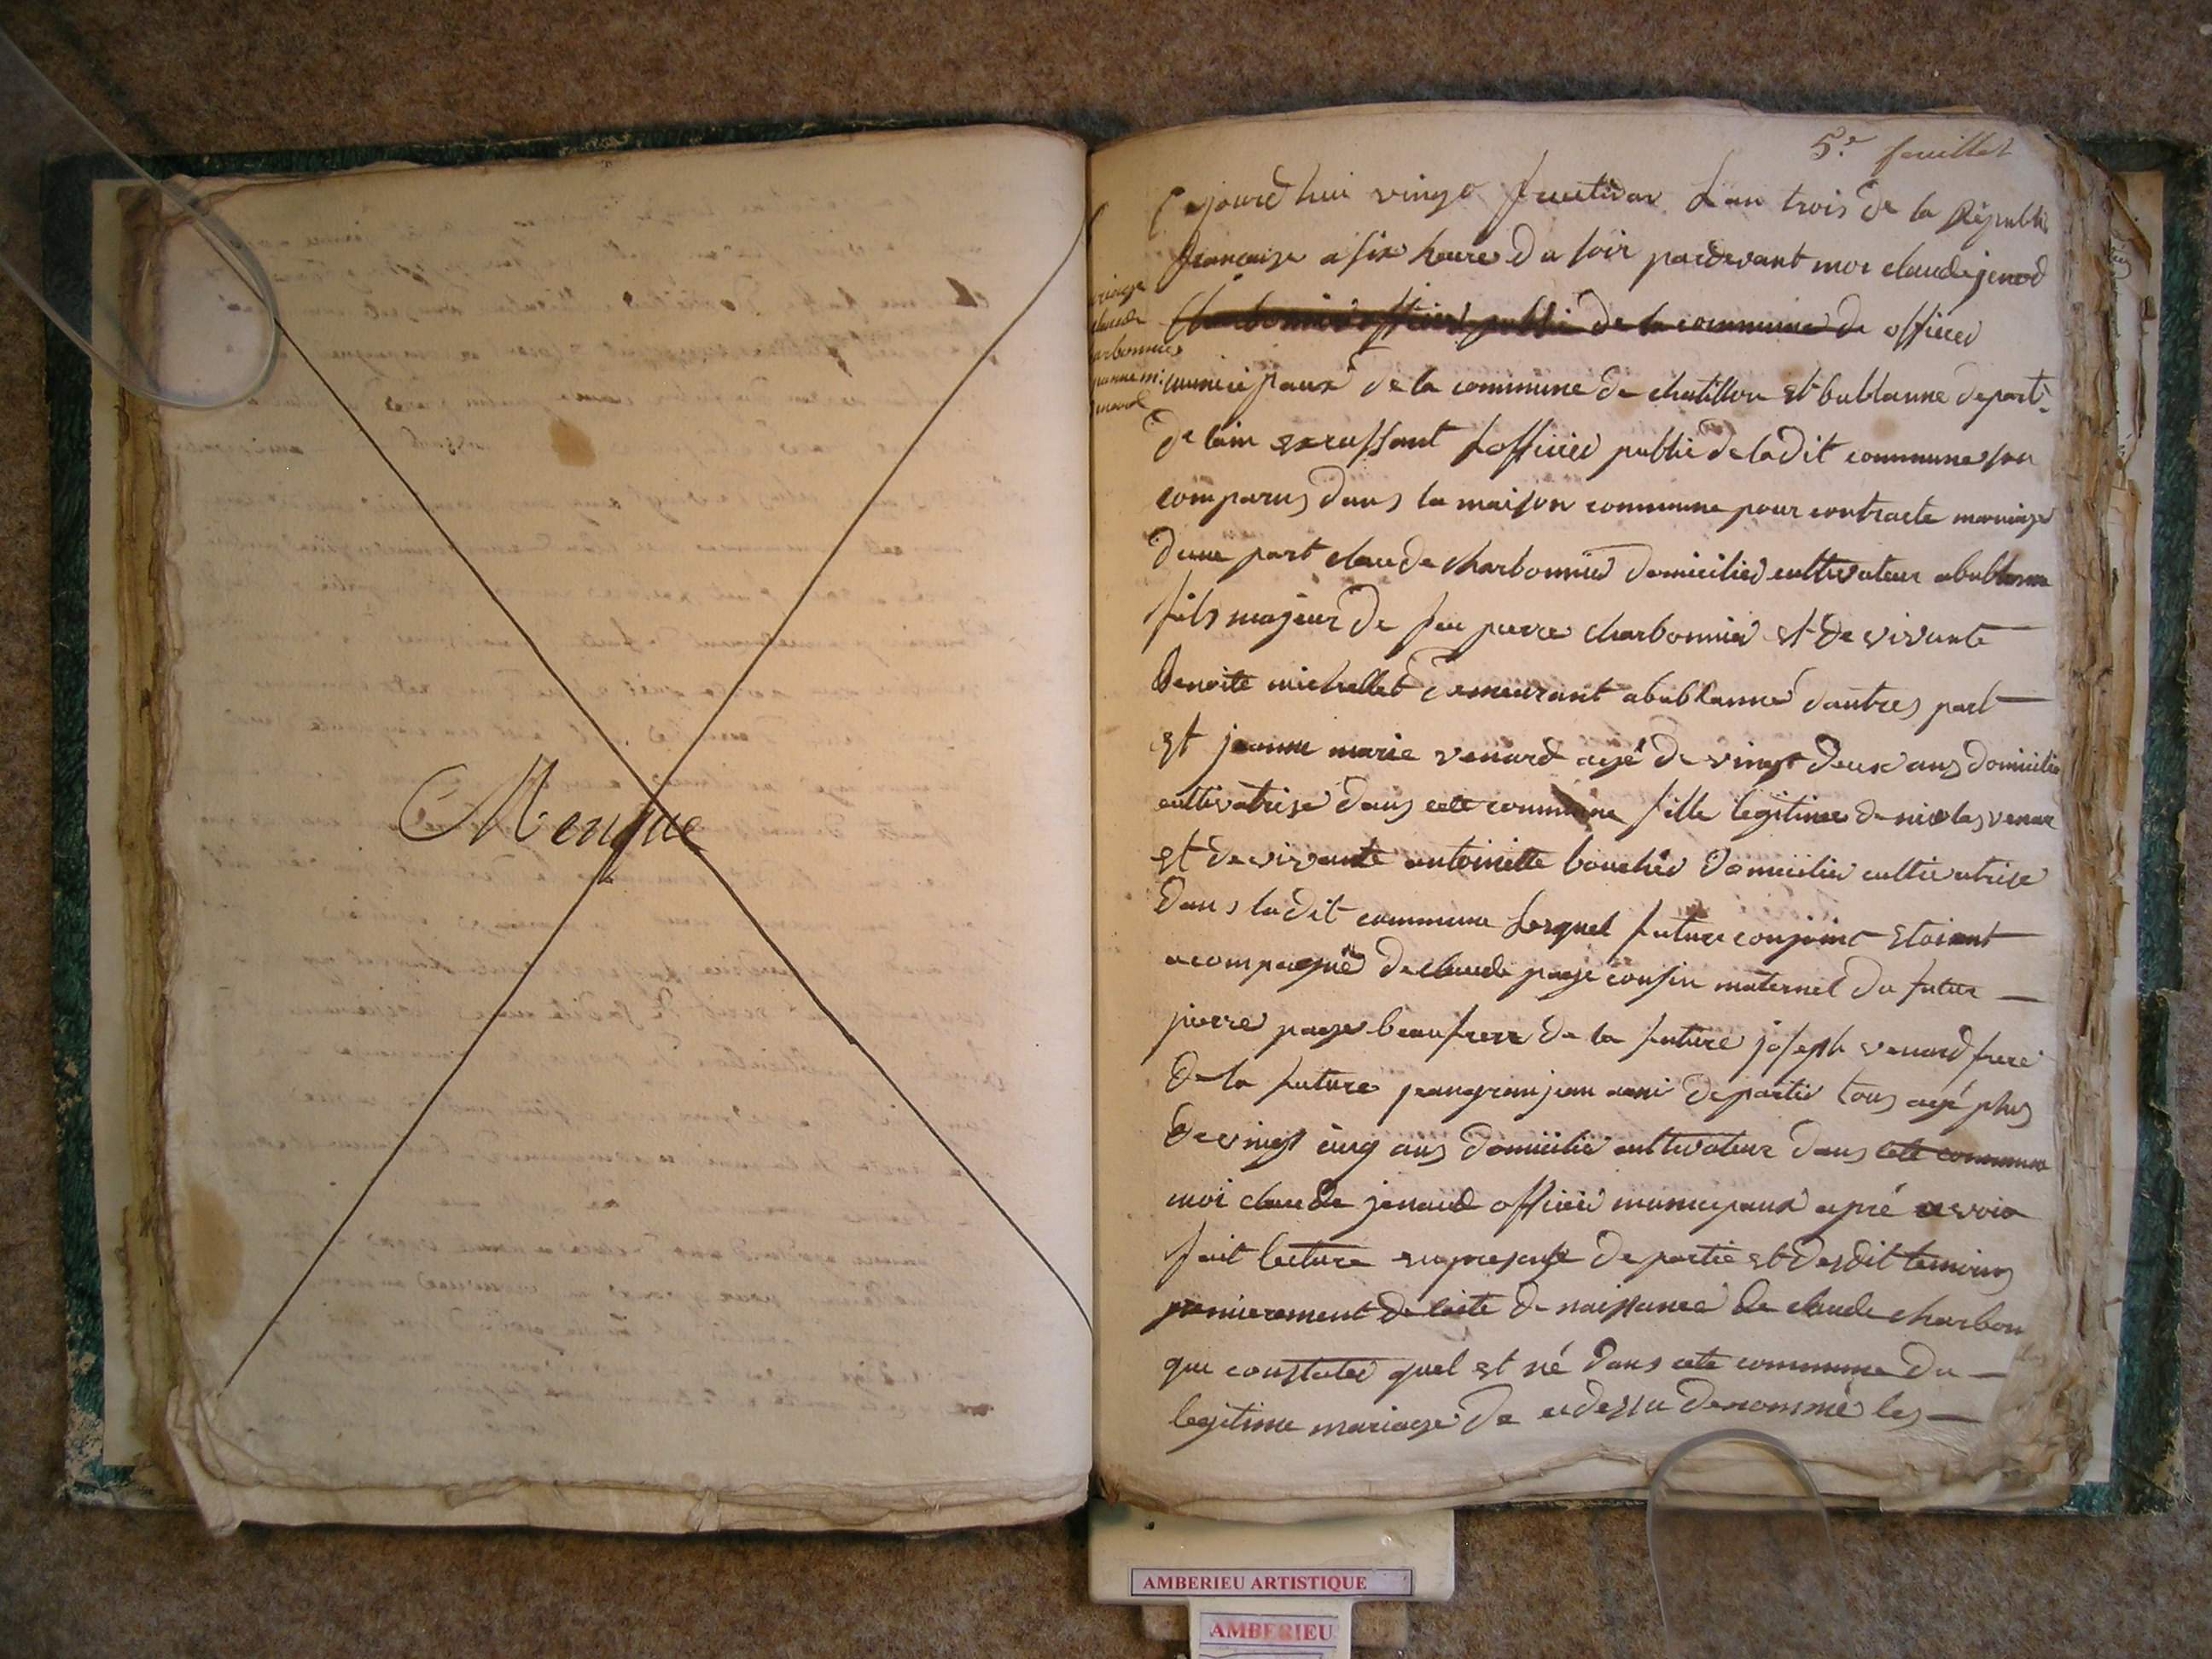 Menque
5.e feuillet
ajourd huy vingt fructidor Lan trois de la Républi
francaise a six heure du soir pardevant moi claude jenod
Charbonnier officier public de la commune de officier
mariage
claude
arbonnier
jeanne m.
venard
municipaux de la commune de chatillon et bublanne depart.
de lain exersant Lofficier public de ladit commune son
comparus dans la maison commune pour contracte mariage
dune part claude charbonnier domicilier cultivateur abublane
fils majeur de feu pierre charbonnier et de vivante
Benoite michellet demeurant abublanne dautres part
et jeanne marie venard agé de vingt deux ans domicilie
cultivatrise dans cete commune fille legitime de nicolas venar
et de vivante antoinette bouchér domicilier cultivatrise
Dans ladit commune Lesquel future conjoint etoient
acompagné de claude page cousin maternel du futur
pierre page beaufrere de la future joseph venard frere
de la future jeangranjean ami de partie tous agé plus
de vingt cinq ans domicilié cultivateur dans cete commune
moi claude jenaud officier municipaux apré avoir
fait lecture en presence de partie et desdit temoins
premierement de lacte de naissance de claude charbon
que constater quel est né dans cete commune du
legitime mariage de cidessu denommé les
AMBERIEU ARTISTIQUE
AMBERIEU